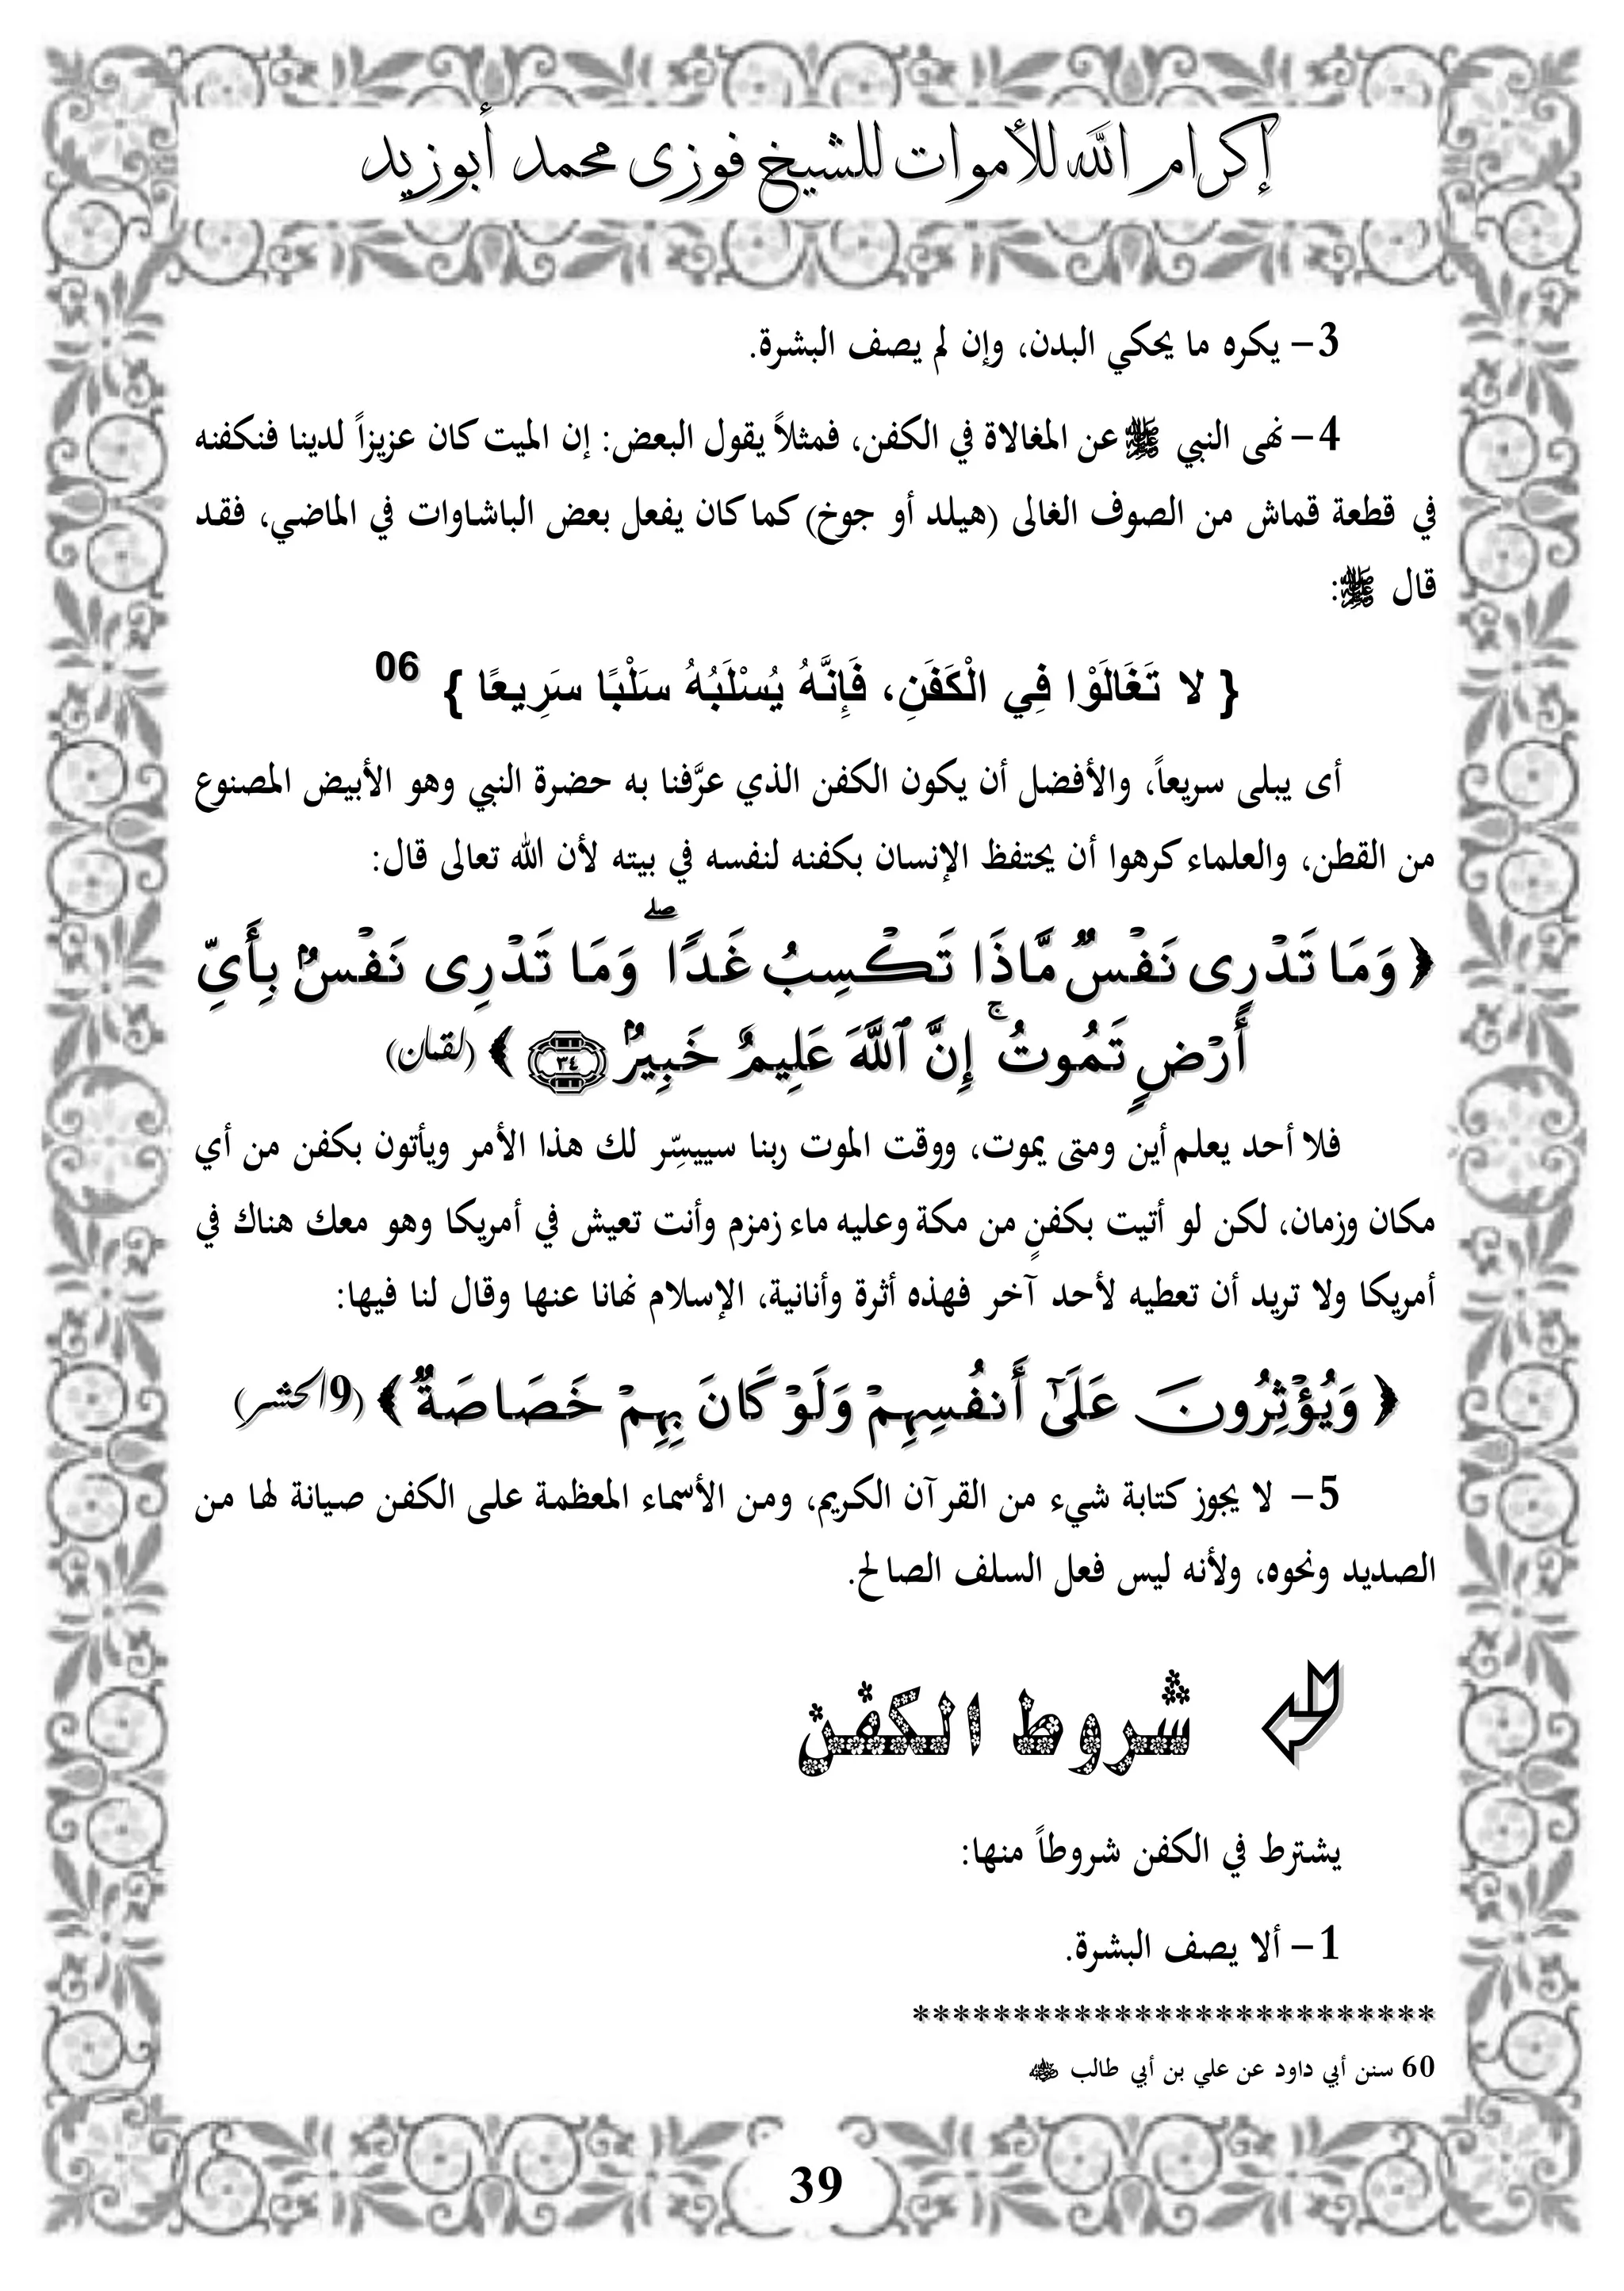 إكرام الله للأموات للشيخ فوزى محمد أبوزيد
3- يكره ما يحكي البدن، وإن لم يصف البشرة.
4- نهى النبي ﷺ عن المغالاة في الكفن، فمثلاً يقول البعض: إن الميت كان عزيزاً لدينا فنكفنه
في قطعة قماش من الصوف الغالى (هيلد أو جوخ) كما كان يفعل بعض الباشاوات في الماضي، فقد
قال ﷺ:
{ لا تَغَالَوْا فِي الْكَفَنِ، فَإِنَّهُ يُسْلَبُهُ سَلْبًا سَرِيعًا } 06
أى يبلى سريعاً، والأفضل أن يكون الكفن الذي عرَّفنا به حضرة النبي وهو الأبيض المصنوع
من القطن، والعلماء كرهوا أن يحتفظ الإنسان بكفنه لنفسه في بيته لأن الله تعالى قال:
﴿ وَمَا تَدْرِى نَفْسٌ مَّاذَا تَكْسِبُ غَدًا ۖ وَمَا تَدْرِى نَفْسٌۢ بِأَيِّ
أَرْضٍ تَمُوتُ ۚ إِنَّ ٱللَّهَ عَلِيمٌ خَبِيرٌۢ ٣٤ ﴾ (لقمان)
فلا أحد يعلم أين ومتى يموت، ووقت الموت ربنا سييسِّر لك هذا الأمر ويأتون بكفن من أي
مكان وزمان، لكن لو أتيت بكفنٍ من مكة وعليه ماء زمزم وأنت تعيش في أمريكا وهو معك هناك في
أمريكا ولا تريد أن تعطيه لأحد آخر فهذه أثرة وأنانية، الإسلام نهانا عنها وقال لنا فيها:
﴿ وَيُؤْثِرُونَ عَلَىٰٓ أَنفُسِهِمْ وَلَوْ كَانَ بِهِمْ خَصَاصَةٌ ﴾ (9الحشر)
5- لا يجوز كتابة شيء من القرآن الكريم، ومن الأسماء المعظمة على الكفن صيانة لها من
الصديد ونحوه، ولأنه ليس فعل السلف الصالح.
شروط الكفن
يشترط في الكفن شروطاً منها:
1- ألا يصف البشرة.
**************************
60 سنن أبي داود عن علي بن أبي طالب ﷜
39